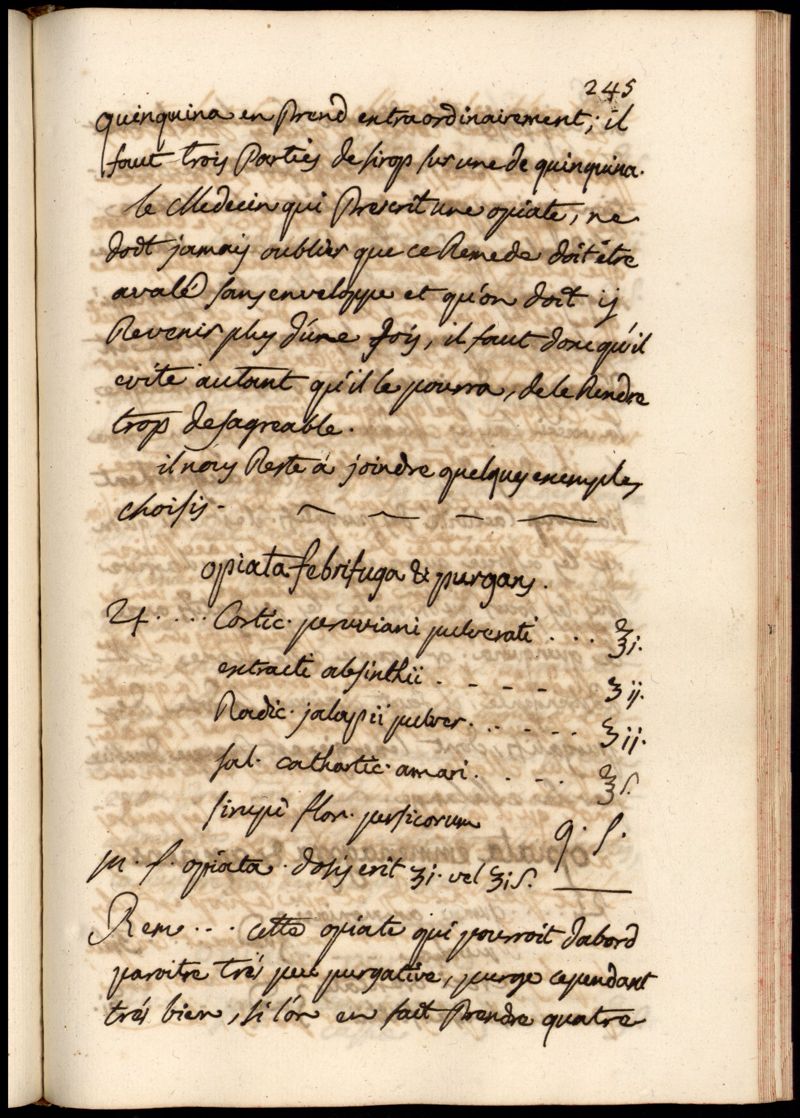 245
quinquina en Prend extraordinairement; il
faut trois Parties de sirop sur une de quinquina.
le Medecin qui Prescrit une opiate, ne
doit jamais oublier que ce Remede doit être
avalé sans enveloppe et qu'on doit ij
Revenir plus d'une fois, il faut donc qu'il
evite autant qu'il le pourra, de le Rendre
trop desagreable.
il nous Reste à joindre quelques exemples
choisis.
opiata febrifuga & purgans.
♃ .... Cortic. peruviani pulverati ... ℥j.
extracti absinthii . - - - - ʒij.
Radic. jalapii pulver. . . - - - ʒij.
sal. cathartic. amari. . - - . ℥ſ.
sirupi flor. persicorum q. ſ.
m. f. opiata. dosis erit ʒj. vel ʒjſ.
Rem ... cette opiate qui pourroit dabord
paroitre trés peu purgative, purge cependant
trés bien, si l'on en fait Prendre quatre